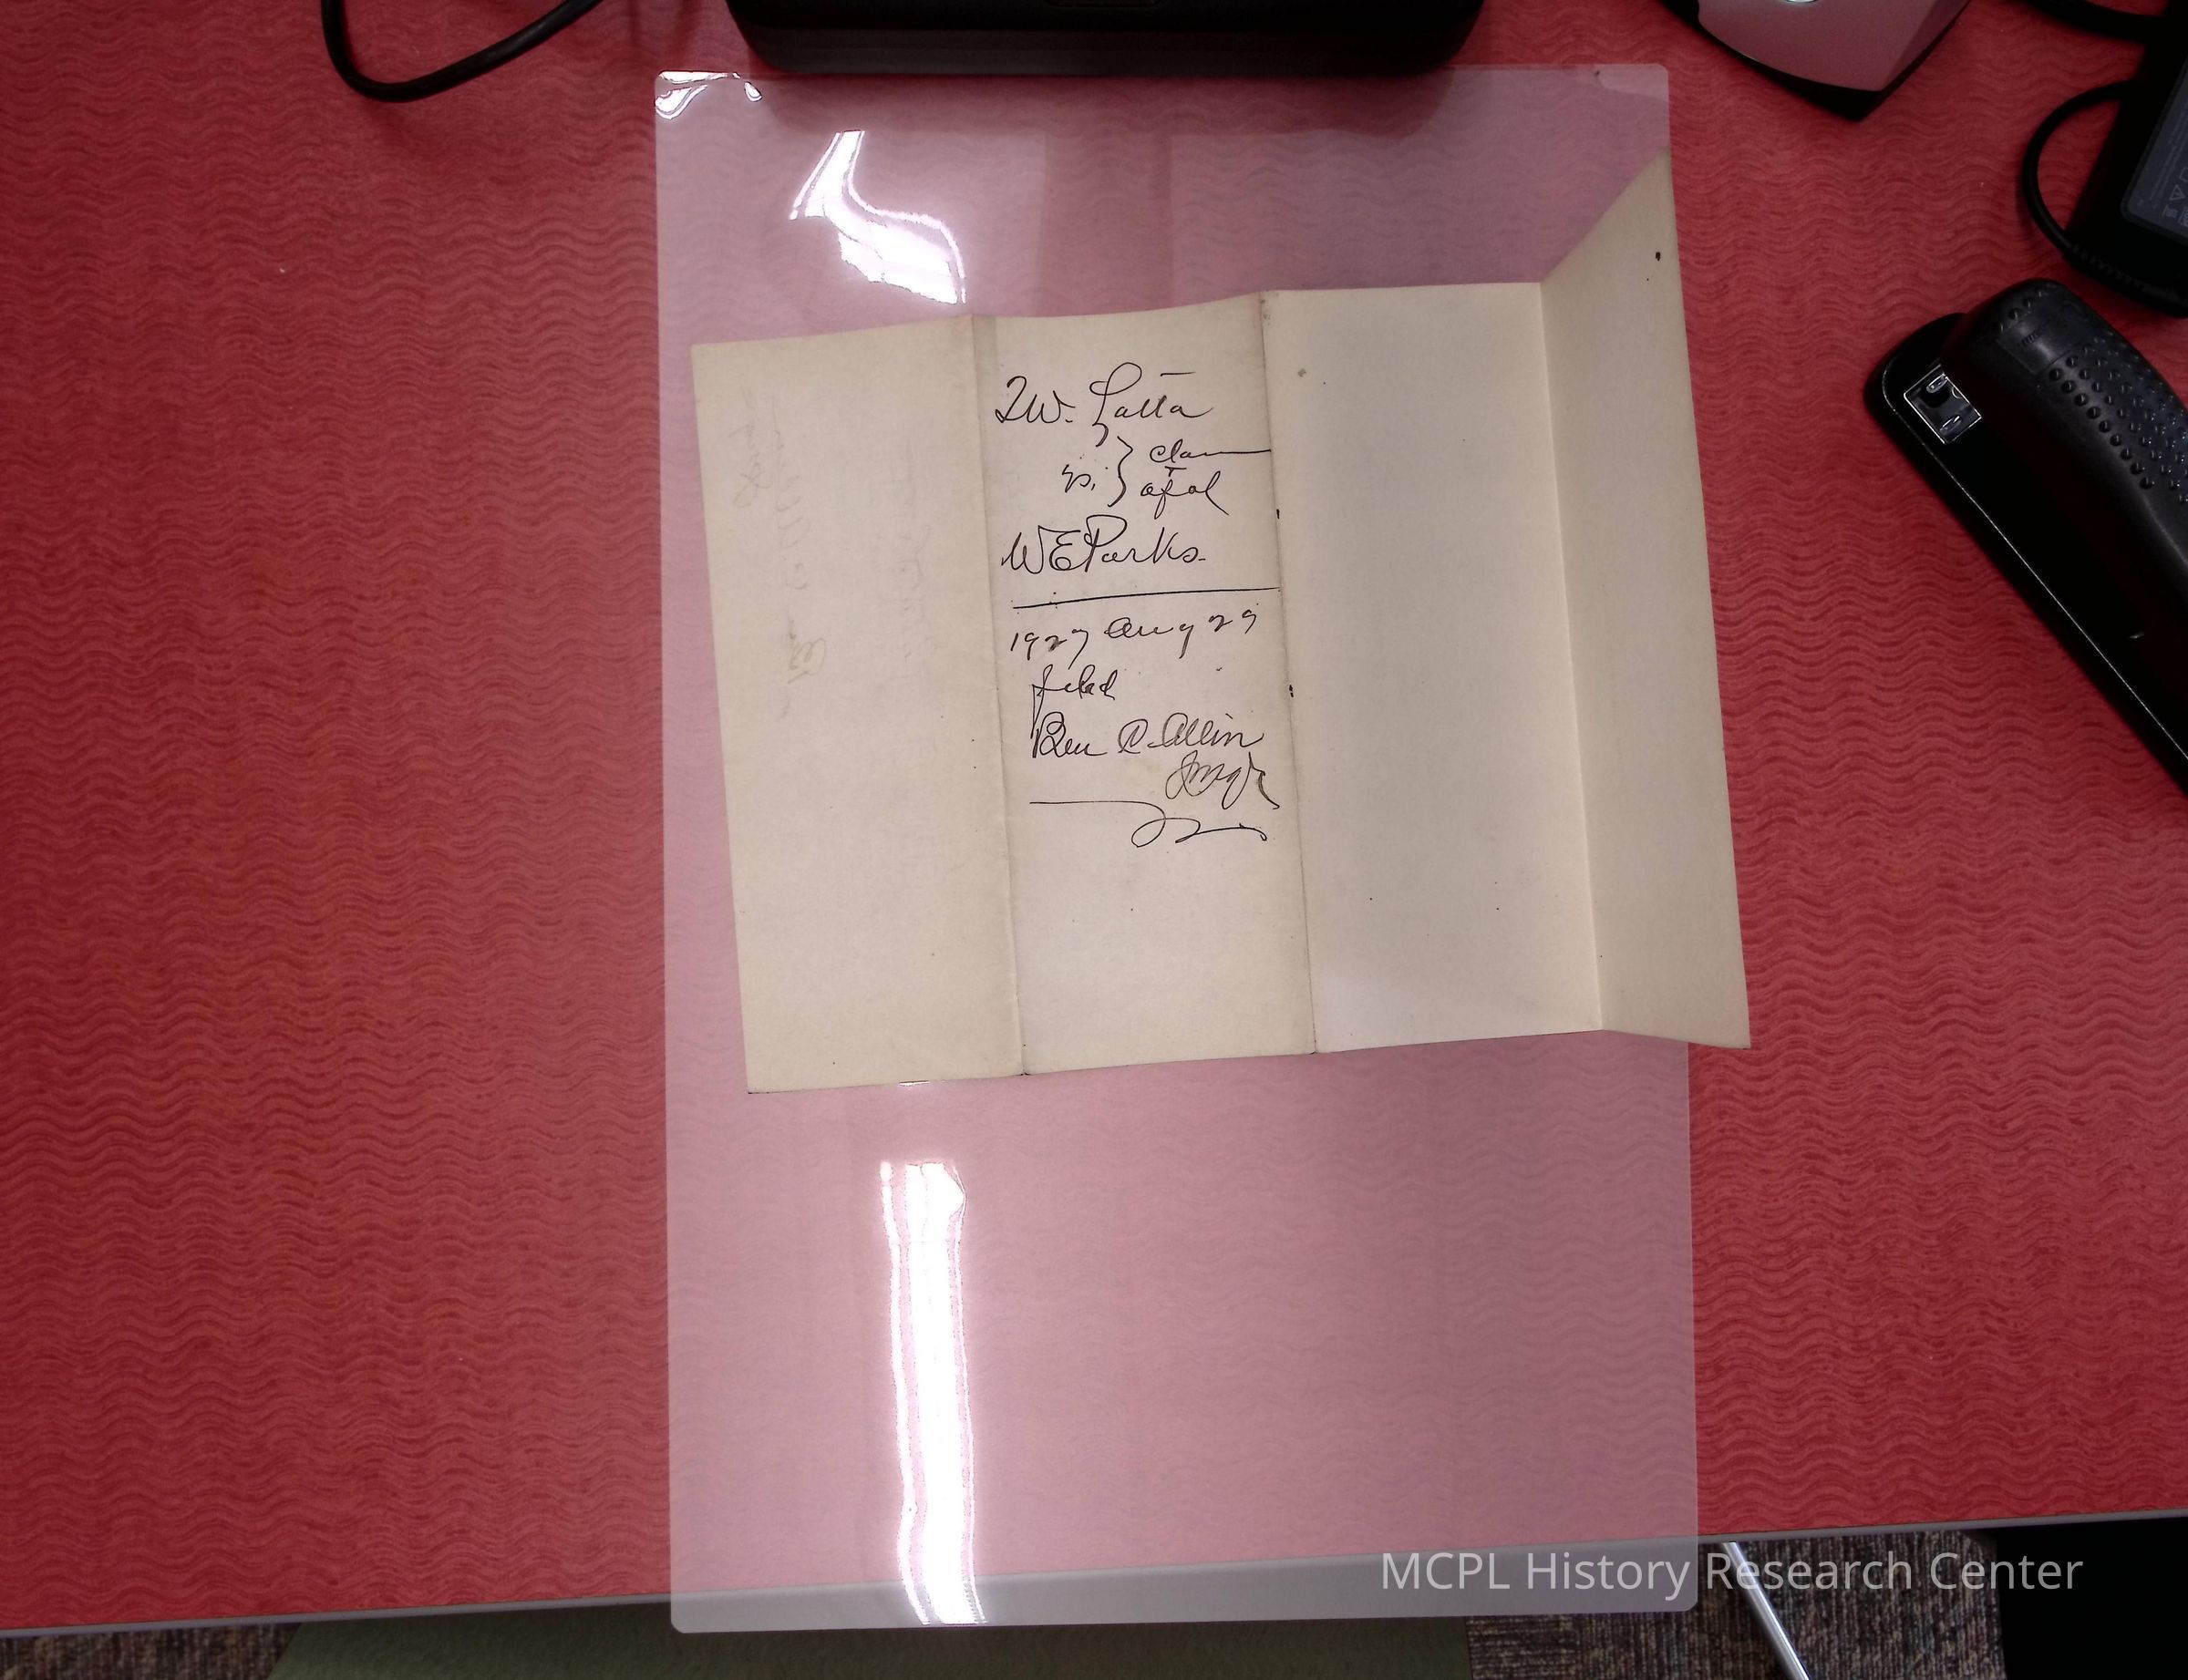 J.W. Latta
vs. } claim
afal
W E Parks.
1927 Aug 29
filed
Ben C. Allin
MCPL History Research Center